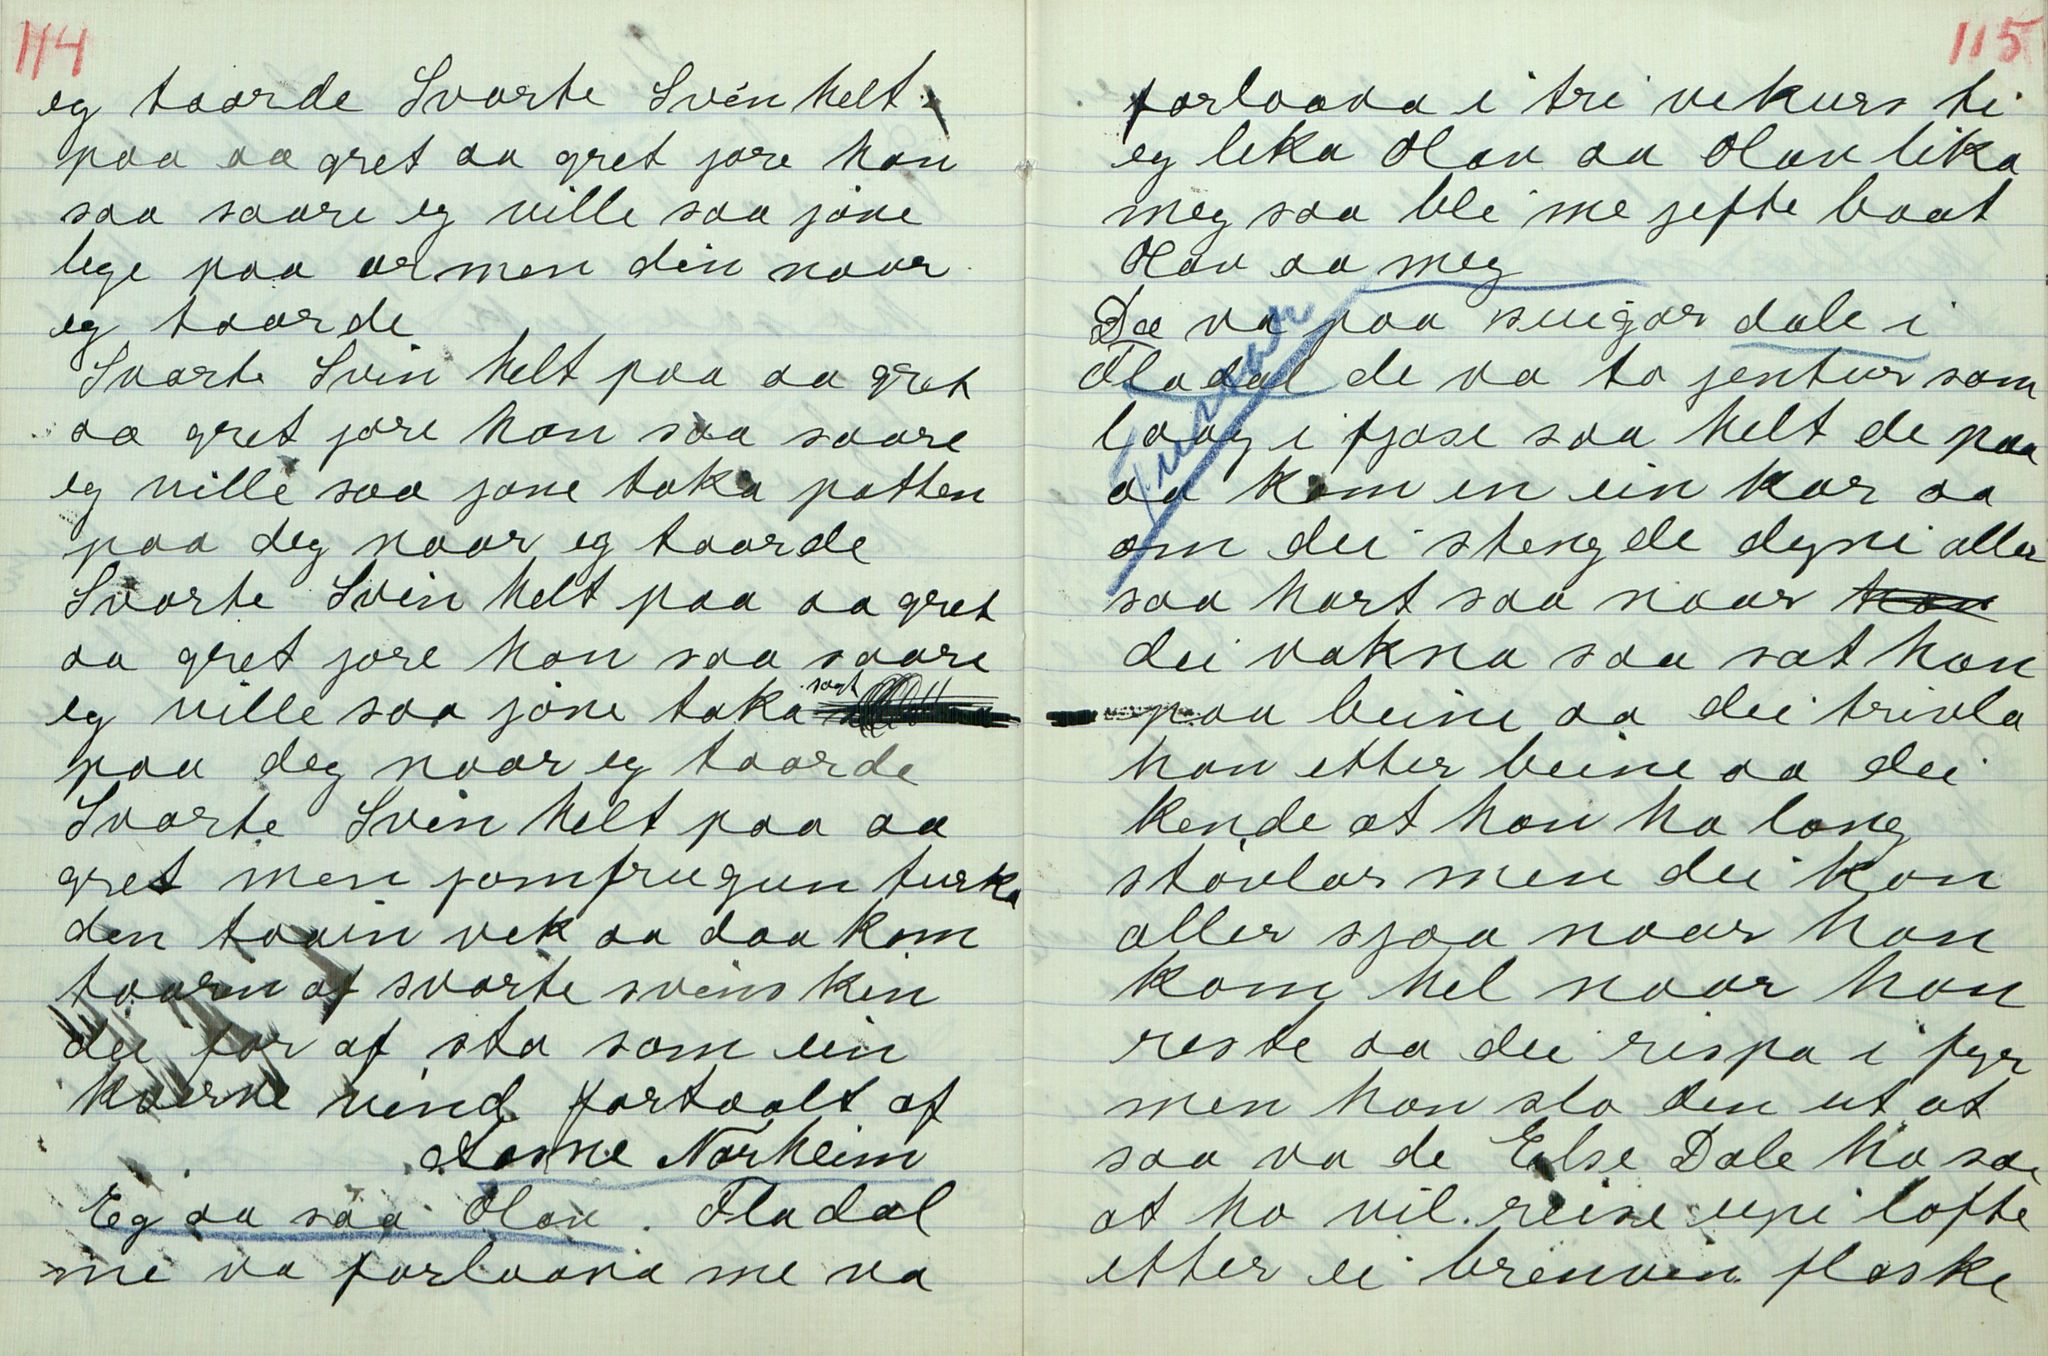 114
eg taarde Svarte Svein helt
paa aa gret aa gret jore han
saa saare eg ville saa jøne
lege paa armen din naar
eg taarde
Svarte Svein helt paa aa gret
aa gret jore han saa saare
eg ville saa jøne taka patten
paa deg naar eg taarde
Svarte Svein helt paa aa gret
aa gret jore han saa saare
eg ville saa jøne taka
paa deg naar eg taarde
Svarte Svein helt paa aa
gret men jomfrugun turka
den taain vek aa daa kom
taarin af svarte sveins kin
dei for af sta som ein
kverne vind fortaalt af
Aasne Norheim
Eg aa saa Olav. Fladal
me va forlaava me va
115
forlaava i tri vekurs ti
eg lika Olav aa Olav lika
meg saa blei me jefte baat
Olav aa meg
Dæ va paa suigar dale i
Fladal de va to jentur som
laag i fjøse saa helt de paa
aa kom en ein kar aa
om dei stengde dyni aller
saa hart saa naar
dei vakna saa sat han
paa beine aa dei trivla
han etter beine aa dei
kende at han ha lang
støvlar men dei kan
aller sjaa naar han
kom hel naar han
reste aa dei rispa i fyr
men han slo den ut at
saa va de Else Dale ha sa
at ho vil reise upi lofte
etter ei brenven flaske